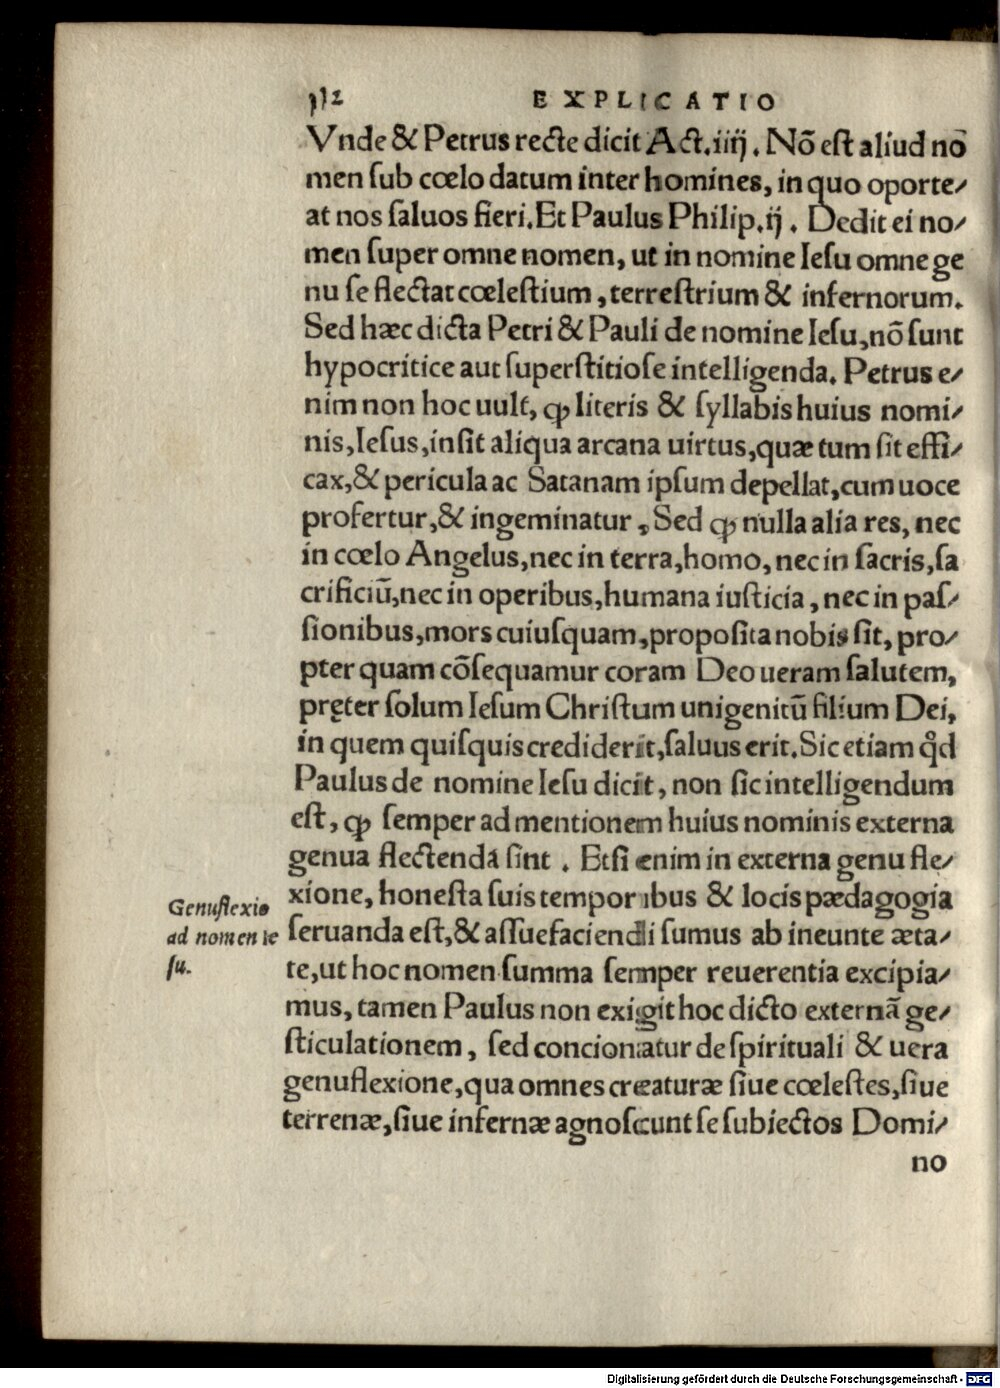 112 EXPLICATIO
Vnde & Petrus recte dicit Act.iiij. Nō est aliud no
men sub cœlo datum inter homines, in quo oporte⸗
at nos saluos fieri. Et Paulus Philip.ij. Dedit ei no⸗
men super omne nomen, ut in nomine Iesu omne ge
nu se flectat cœlestium, terrestrium & infernorum.
Sed hæc dicta Petri & Pauli de nomine Iesu, nō sunt
hypocritice aut superstitiose intelligenda. Petrus e⸗
nim non hoc uult, ꝙ literis & syllabis huius nomi⸗
nis, Iesus, insit aliqua arcana uirtus, quæ tum sit effi⸗
cax, & pericula ac Satanam ipsum depellat, cum uoce
profertur, & ingeminatur, Sed ꝙ nulla alia res, nec
in cœlo Angelus, nec in terra, homo, nec in sacris, sa
crificiū, nec in operibus, humana iusticia, nec in pas⸗
sionibus, mors cuiusquam, proposita nobis sit, pro⸗
pter quam cōsequamur coram Deo ueram salutem,
pręter solum Iesum Christum unigenitū filium Dei,
in quem quisquis crediderit, saluus erit. Sic etiam qd
Paulus de nomine Iesu dicit, non sic intelligendum
est, ꝙ semper ad mentionem huius nominis externa
genua flectenda sint. Etsi enim in externa genu fle⸗
xione, honesta suis temporibus & locis pædagogia
Genuflexio
ad nomen Ie
su.
seruanda est, & assuefaciendi sumus ab ineunte æta⸗
te, ut hoc nomen summa semper reuerentia excipia⸗
mus, tamen Paulus non exigit hoc dicto externā ge⸗
sticulationem, sed concionatur de spirituali & uera
genuflexione, qua omnes creaturæ siue cœlestes, siue
terrenæ, siue infernæ agnoscunt se subiectos Domi⸗
no
Digitalisierung gefördert durch die Deutsche Forschungsgemeinschaft - DFG